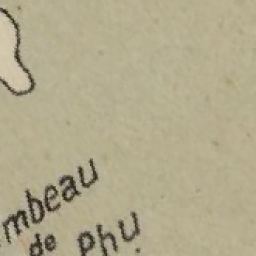 mbeau
de Phụ